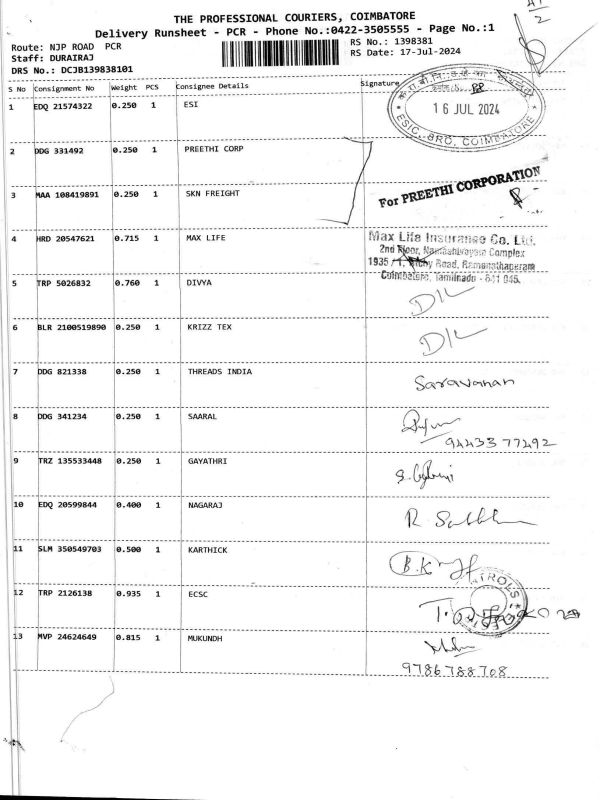 THE PROFESSIONAL COURIERS, COIMBATORE
Delivery Runsheet - PCR - Phone No.:0422-3505555 - Page No.:1
Route: NJP ROAD PCR
RS No.: 1398381
Staff: DURAIRAJ
RS Date: 17-Jul-2024
DRS No.: DCJB139838101
S No Consignment No Weight PCS Consignee Details Signature
1 EDQ 21574322 0.250 1 ESI
16 JUL 2024
ESIC, BRO, COIMBATORE
2 DDG 331492 0.250 1 PREETHI CORP
3 MAA 108419891 0.250 1 SKN FREIGHT
For PREETHI CORPORATION
4 HRD 20547621 0.715 1 MAX LIFE
Max Life Insurance Co. Ltd.
2nd Floor, Complex
Road, Ramanathapuram
Coimbatore, Tamilnadu - 641 045.
5 TRP 5026832 0.760 1 DIVYA
D/L
6 BLR 2100519890 0.250 1 KRIZZ TEX
D/L
7 DDG 821338 0.250 1 THREADS INDIA
Saravanan
8 DDG 341234 0.250 1 SAARAL
94433 77492
9 TRZ 135533448 0.250 1 GAYATHRI
10 EDQ 20599844 0.400 1 NAGARAJ
11 SLM 350549703 0.500 1 KARTHICK
B.K
12 TRP 2126138 0.935 1 ECSC
13 MVP 24624649 0.815 1 MUKUNDH
9786788708